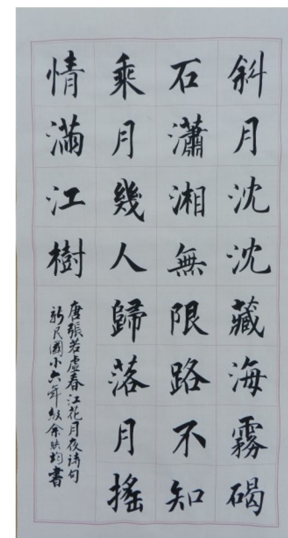 斜月沈沈藏海霧碣
石瀟湘無限路不知
乘月幾人歸落月搖
情滿江樹
唐張若虛春江花月夜詩句
新民國小六年級余昀書